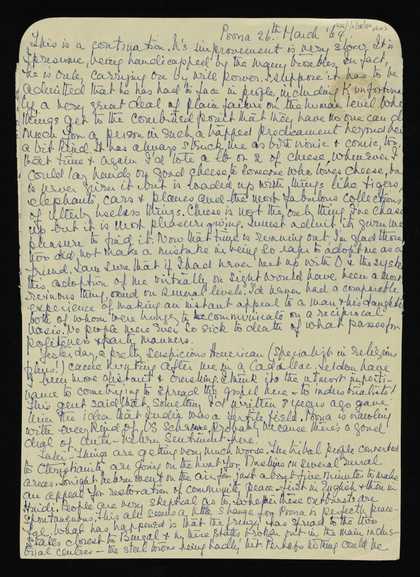 Poona 26th March '64
This is a continuation. K's improvement is very slow. It is
I presume, being handicapped by the many troubles, in fact,
he is only carrying on by will power. I suppose it has to be
admitted that he has had to face in people, including K unfortunately
a very great deal of plain failure on the human level. When
things get to the point that they have no one can do
much for a person in such a trapped predicament beyond being
a bit kind. It has always struck me as both ironic & comic, too,
that time & again I'd tote a lb or 2 of cheese, whenever I
could lay hands on good cheese to someone who loves cheese, but
is never given it but is loaded up with things like tigers,
elephants, cars & planes and the most fabulous collections
of utterly useless things. Cheese is not the only thing I've chased
up but it is most pleasure giving. I must admit it given me
pleasure to find it. Now that time is running out I'm glad that
you did not make a mistake in being so rash to adopt me as a
friend. I am sure that if I had
this adoption of me virtually on sight would have been a most
thing and on several levels. I'd never had a comparable
experience of making an instant appeal to a man
both of whom were hungry to communicate on a reciprocal
basis. No people were ever so sick to death of what passes for
politeness & party manners.
Yesterday, a pretty suspicious American (specialist in religious
films!) came hunting after me in a Cadillac. Seldom have
I been more distant & crushing. I think it's the utmost imperti-
nance to come trying to spread the gospel here to industrialists!
This gent said that something I'd written 8 years ago gave
him the idea that India was a fertile field. Poona is crawling
with every kind of US probably because there's a good
deal of anti-Nehru sentiment here.
Later: Things are getting very much worse. The tribal people converted
to Christianity are going on the hunt for Muslims in several rural
areas. Tonight Nehru went on the air for just about five minutes to make
an appeal for restoration of community peace - first in English & then in
Hindi. People are very skeptical as to whether these outbursts are
spontaneous. This all seems a little strange for Poona is perfectly peace-
ful. What has happened is that the frenzy has spread to the two
States closest to Bengal & in these States broken out in the main indus-
trial centres - the steel towns being badly hit. Perhaps nothing could be